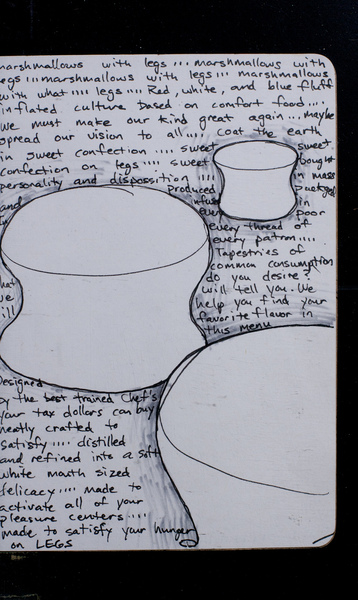 marshmallows with legs ... marshmallows with
legs ... marshmallows with legs ... marshmallows
with what .... legs .... Red, white, and blue fluff
inflated culture based on comfort food ....
We must make our kind great again .... maybe
spread our vision to all .... coat the earth
in sweet confection .... sweet sweet
confection on legs .... sweet bought
personality and disposition .... in mass
and produced
infused in
every poor
every thread of
every patron ....
Tapestries of
common consumption
do you desire?
will tell you. We
help you find your
favorite flavor in
this menu
hat
we
ill
Designed
by the best trained Chef's
your tax dollars can buy
neatly crafted to
satisfy .... distilled
and refined into a soft
white mouth sized
delicacy .... made to
activate all of your
pleasure centers ....
made to satisfy your hunger
on LEGS